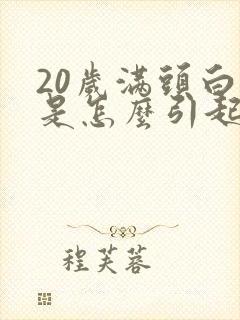 20歲滿頭白
是怎麼引起
程芙蓉